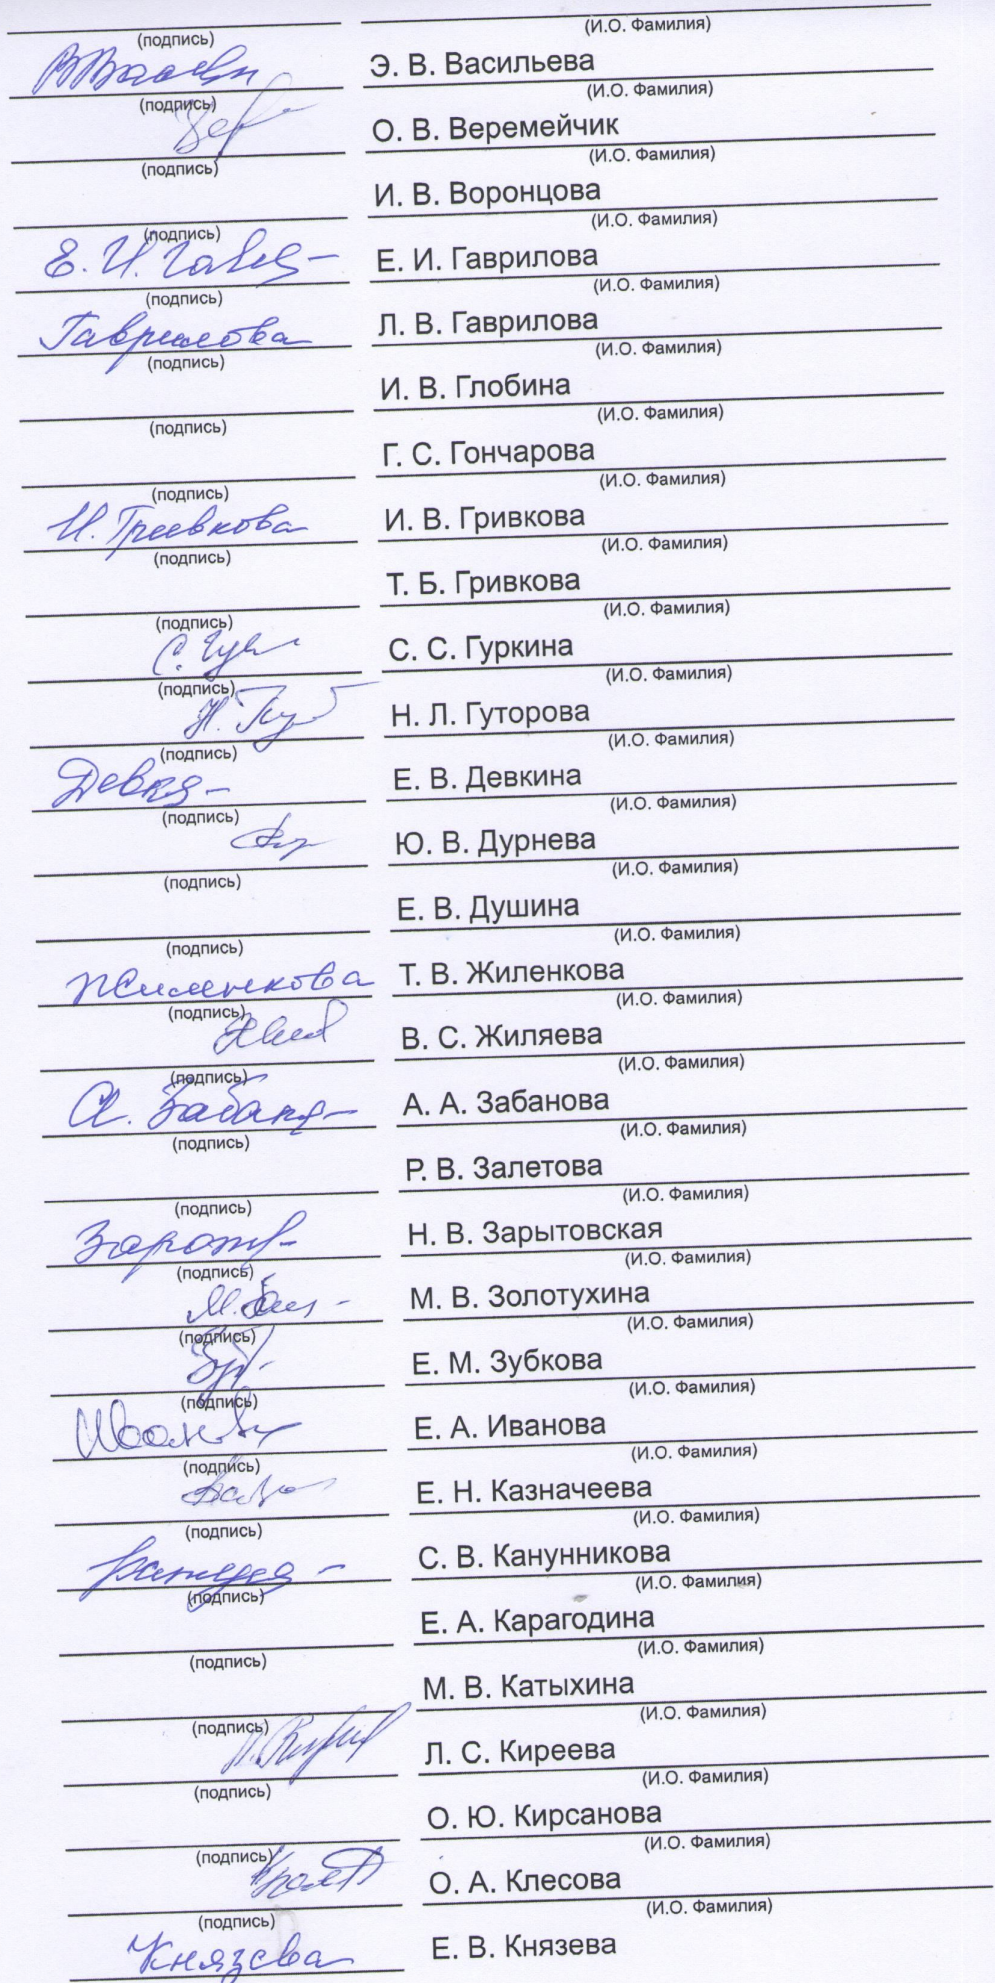 (подпись) (И.О. Фамилия)
Э. В. Васильева
(подпись) (И.О. Фамилия)
О. В. Веремейчик
(подпись) (И.О. Фамилия)
И. В. Воронцова
(подпись) (И.О. Фамилия)
Е. И. Гаврилова
(подпись) (И.О. Фамилия)
Гаврилова Л. В. Гаврилова
(подпись) (И.О. Фамилия)
И. В. Глобина
(подпись) (И.О. Фамилия)
Г. С. Гончарова
(подпись) (И.О. Фамилия)
И. Гривкова И. В. Гривкова
(подпись) (И.О. Фамилия)
Т. Б. Гривкова
(подпись) (И.О. Фамилия)
С. С. Гуркина
(подпись) (И.О. Фамилия)
Н. Л. Гуторова
(подпись) (И.О. Фамилия)
Е. В. Девкина
(подпись) (И.О. Фамилия)
Ю. В. Дурнева
(подпись) (И.О. Фамилия)
Е. В. Душина
(подпись) (И.О. Фамилия)
Жиленкова Т. В. Жиленкова
(подпись) (И.О. Фамилия)
В. С. Жиляева
(подпись) (И.О. Фамилия)
А. А. Забанова
(подпись) (И.О. Фамилия)
Р. В. Залетова
(подпись) (И.О. Фамилия)
Н. В. Зарытовская
(подпись) (И.О. Фамилия)
М. В. Золотухина
(подпись) (И.О. Фамилия)
Е. М. Зубкова
(подпись) (И.О. Фамилия)
Е. А. Иванова
(подпись) (И.О. Фамилия)
Е. Н. Казначеева
(подпись) (И.О. Фамилия)
С. В. Канунникова
(подпись) (И.О. Фамилия)
Е. А. Карагодина
(подпись) (И.О. Фамилия)
М. В. Катыхина
(подпись) (И.О. Фамилия)
Л. С. Киреева
(подпись) (И.О. Фамилия)
О. Ю. Кирсанова
(подпись) (И.О. Фамилия)
О. А. Клесова
(подпись) (И.О. Фамилия)
Князева Е. В. Князева